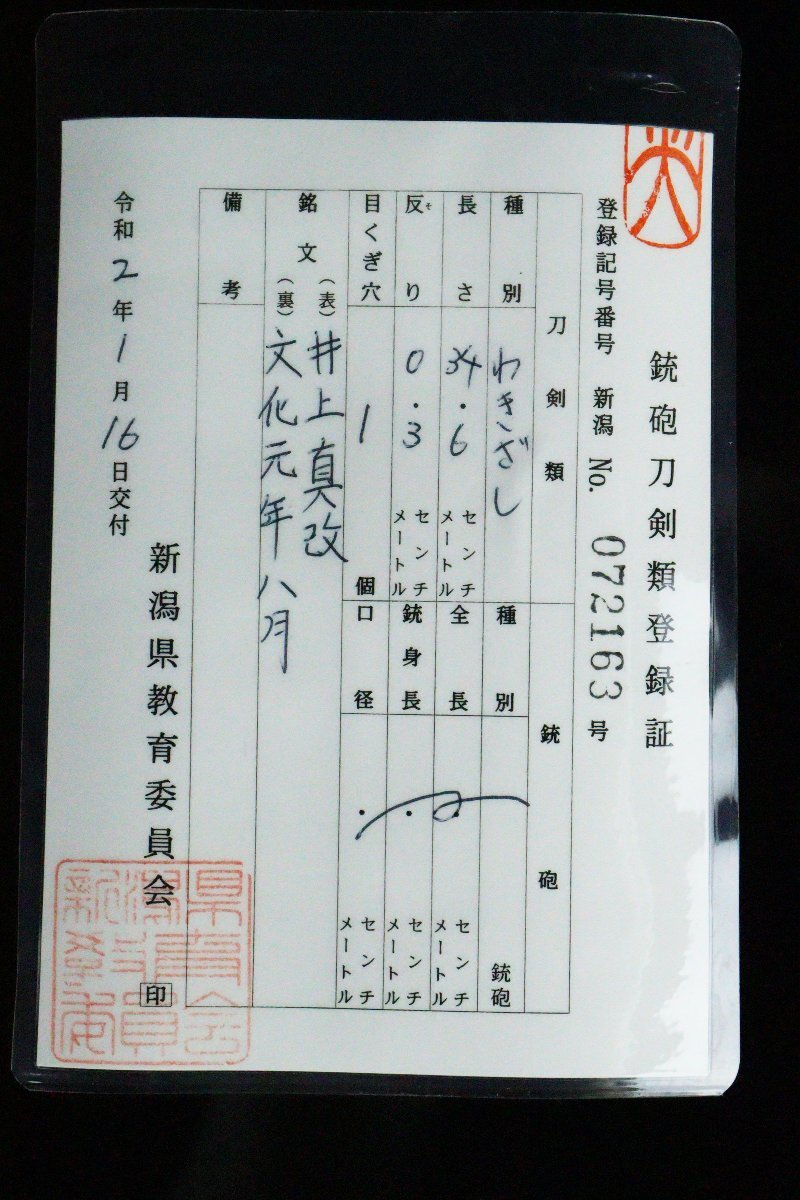 銃砲刀剣類登録証
登録記号番号 新潟 No. 072163 号
刀剣類
種別 わきざし
長さ 34.6 センチメートル
反り 0.3 センチメートル
そ
目くぎ穴 1 個
銘文
(表) 井上真改
(裏) 文化元年八月
備考
銃砲
種別 銃砲
全長 . センチメートル
銃身長 . センチメートル
口径 . センチメートル
令和2年1月16日交付
新潟県教育委員会 印
新潟県教育委員会